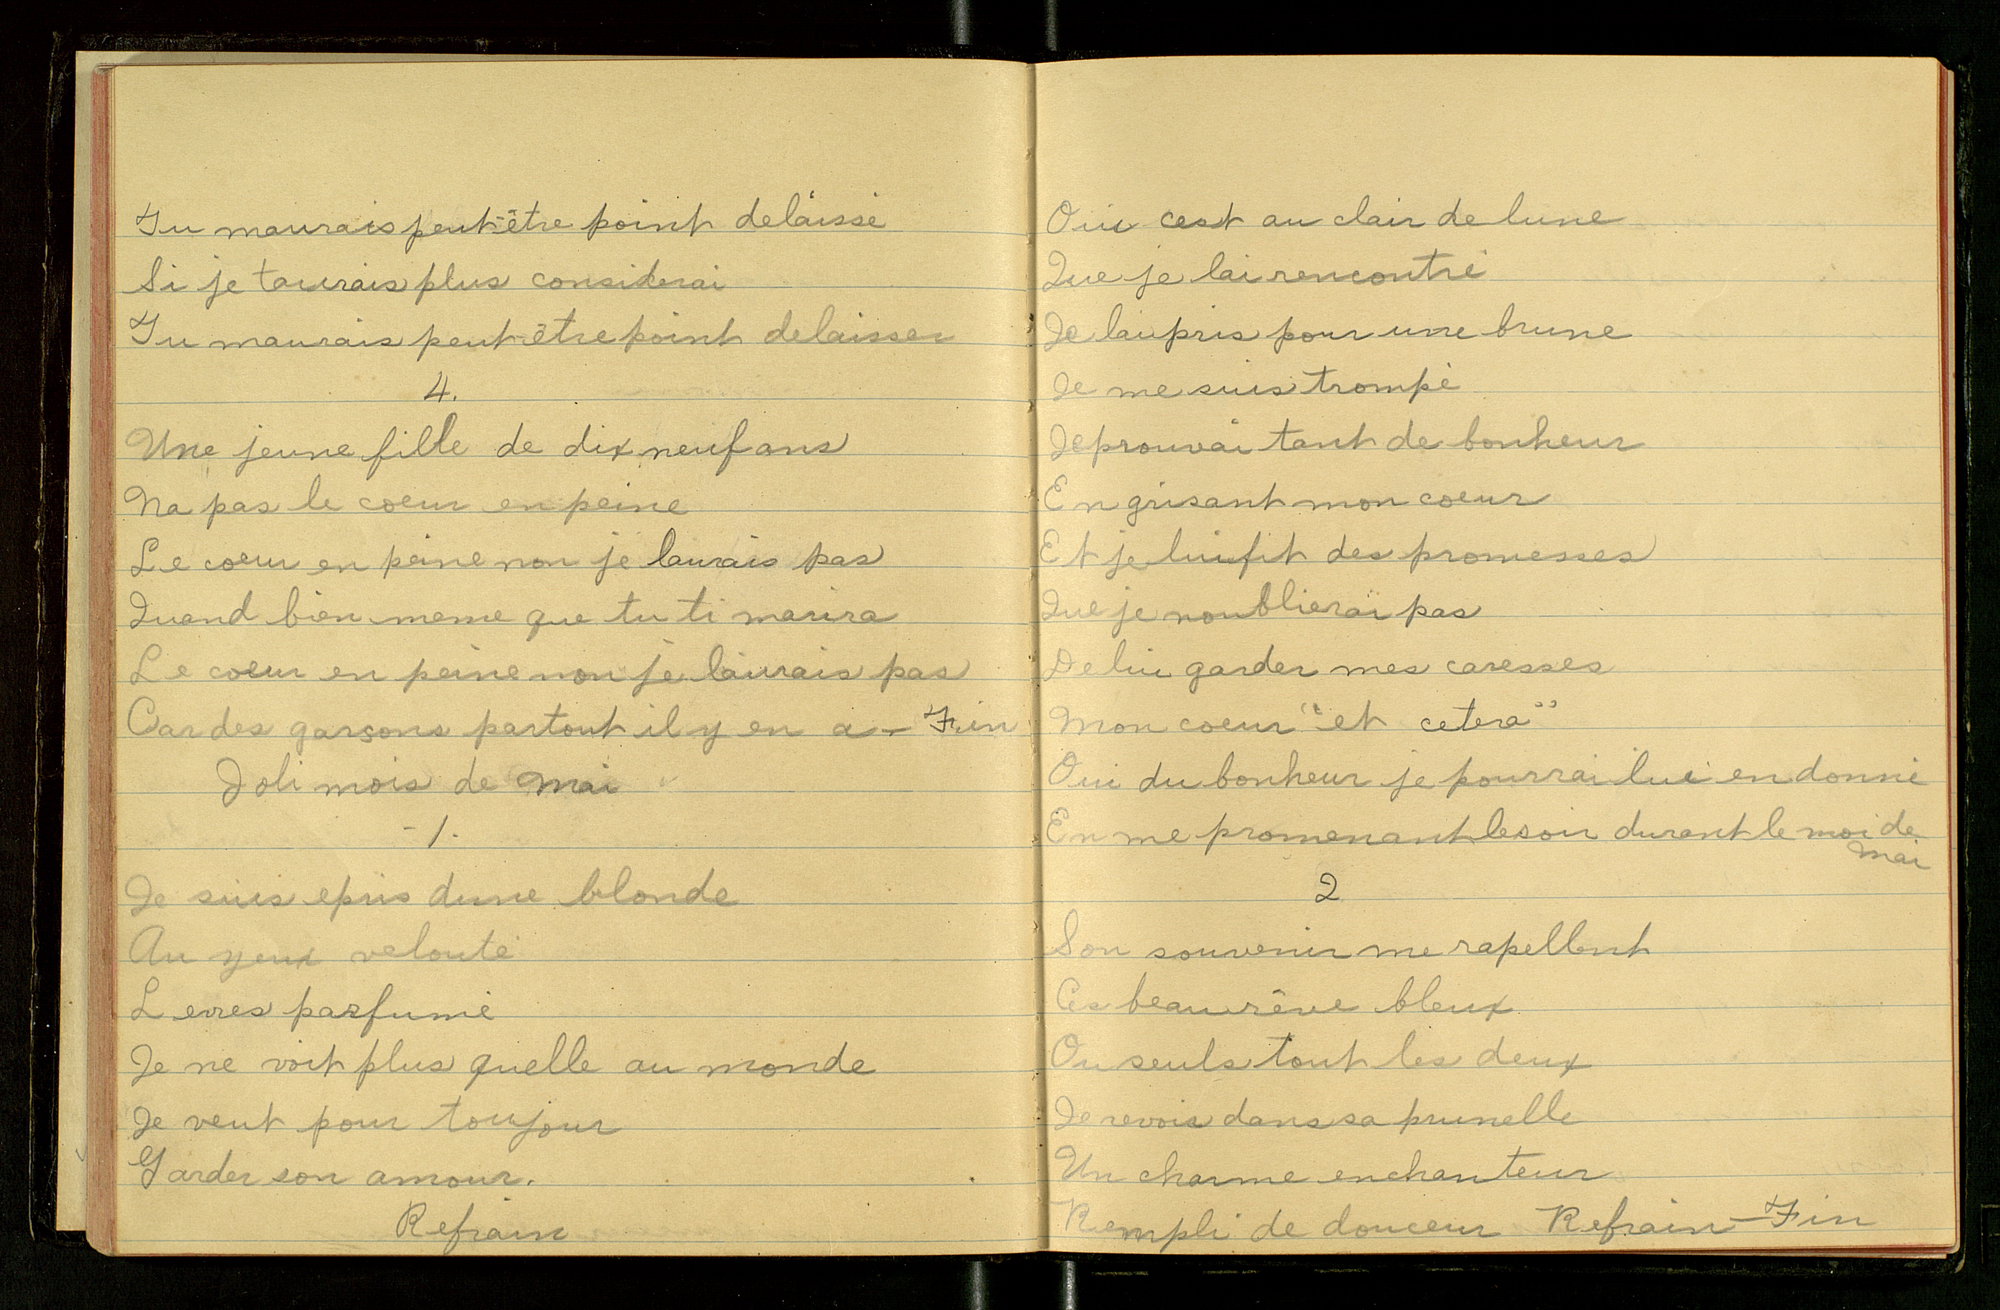 Tu maurais peut-être point delaissé
Si je taurais plus considerai
Tu maurais peut-être point delaisser
4.
Une jeune fille de dix neuf ans
Na pas le coeur en peine
Le coeur en peine non je laurais pas
Quand bien meme que tu ti marira
Le coeur en peine non je laurais pas
Car des garçons partout il y en a – Fin
Joli mois de mai
- 1.
Je suis epris dune blonde
Au yeux velouté
Levres parfumé
Je ne voit plus quelle au monde
Je veut pour toujour
Garder son amour.
Refrain
Oui cest au clair de lune
Que je lai rencontré
Je lai pris pour une brune
Je me suis trompé
Jeprouvai tant de bonheur
En grisant mon coeur
Et je lui fit des promesses
Que je noublierai pas
De lui garder mes caresses
Mon coeur "et cetera"
Oui du bonheur je pourrai lui en donné
En me promenant le soir durant le moi de
mai
2
Son souvenir me rapellent
Ces beau rêve bleux
Ou seuls tout les deux
Je revois dans sa prunelle
Un charme enchanteur
Rempli de douceur Refrain – Fin